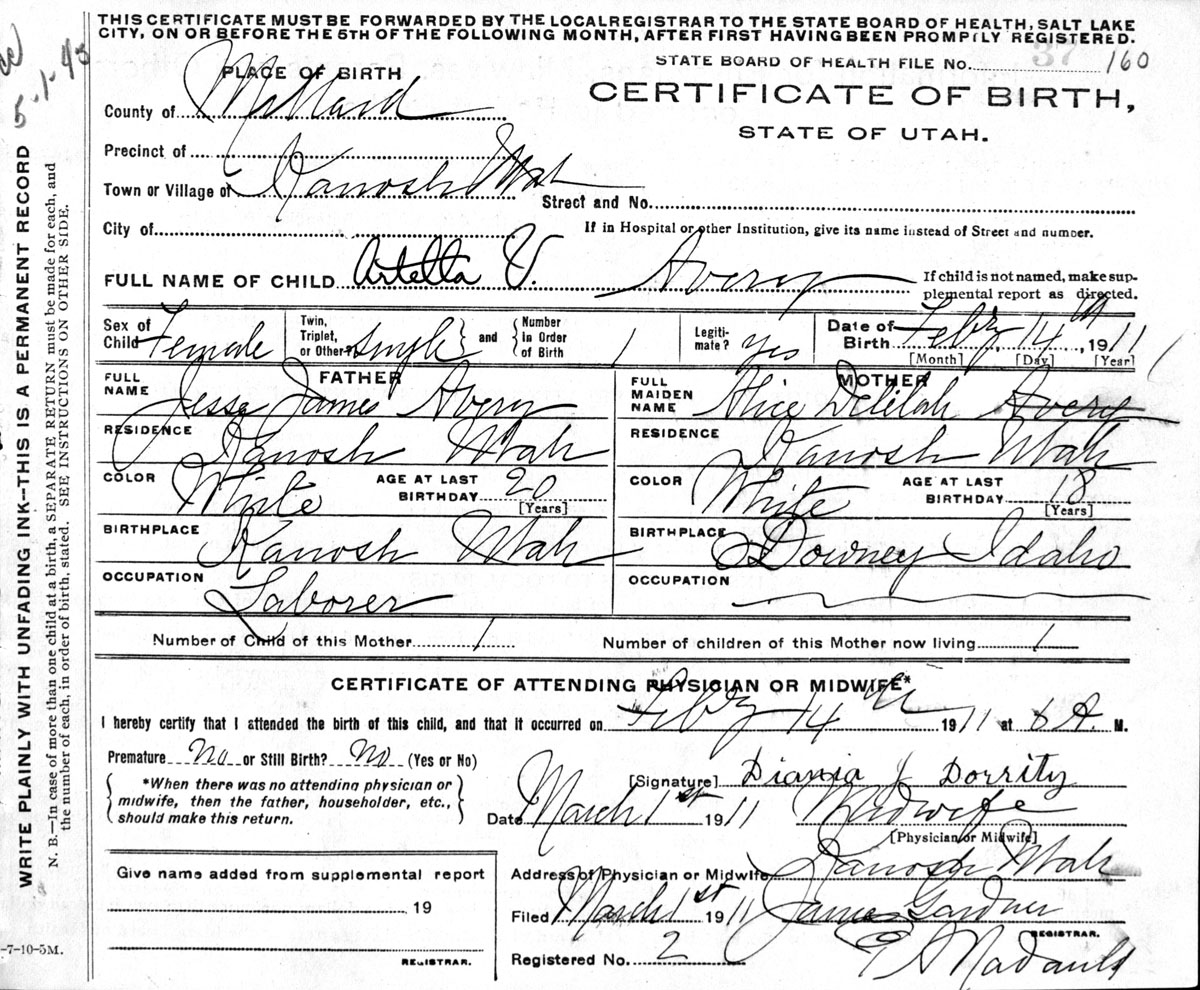 THIS CERTIFICATE MUST BE FORWARDED BY THE LOCAL REGISTRAR TO THE STATE BOARD OF HEALTH, SALT LAKE
CITY, ON OR BEFORE THE 5TH OF THE FOLLOWING MONTH, AFTER FIRST HAVING BEEN PROMPTLY REGISTERED.
STATE BOARD OF HEALTH FILE No. 37 160
PLACE OF BIRTH
CERTIFICATE OF BIRTH,
STATE OF UTAH.
County of Millard
Precinct of
Town or Village of Kanosh Utah
Street and No.
City of
If in Hospital or other Institution, give its name instead of Street and number.
FULL NAME OF CHILD Artella V. Avery
If child is not named, make sup-
plemental report as directed.
Sex of Child Female
Twin, Triplet, or Other? Single and Number in Order of Birth 1
Legiti-mate? yes
Date of Birth Febry 14th, 1911
[Month] [Day] [Year]
FATHER
FULL NAME Jesse James Avery
RESIDENCE Kanosh Utah
COLOR White AGE AT LAST BIRTHDAY 20 [Years]
BIRTHPLACE Kanosh Utah
OCCUPATION Laborer
MOTHER
FULL MAIDEN NAME Alice Delilah Avery
RESIDENCE Kanosh Utah
COLOR White AGE AT LAST BIRTHDAY 18 [Years]
BIRTHPLACE Downey Idaho
OCCUPATION
Number of Child of this Mother 1 Number of children of this Mother now living 1
CERTIFICATE OF ATTENDING PHYSICIAN OR MIDWIFE*
I hereby certify that I attended the birth of this child, and that it occurred on Febry 14th 1911 at 8 A. M.
Premature No or Still Birth? No (Yes or No)
*When there was no attending physician or
midwife, then the father, householder, etc.,
should make this return.
[Signature] Diania J Dorrity
Date March 1st 1911 Midwife
[Physician or Midwife]
Give name added from supplemental report
19
REGISTRAR.
Address of Physician or Midwife Kanosh Utah
Filed March 1st 1911 James Gardner
REGISTRAR.
Registered No. 2
WRITE PLAINLY WITH UNFADING INK--THIS IS A PERMANENT RECORD
N. B.—In case of more than one child at a birth, a SEPARATE RETURN must be made for each, and
the number of each, in order of birth, stated. SEE INSTRUCTIONS ON OTHER SIDE.
-7-10-5M.